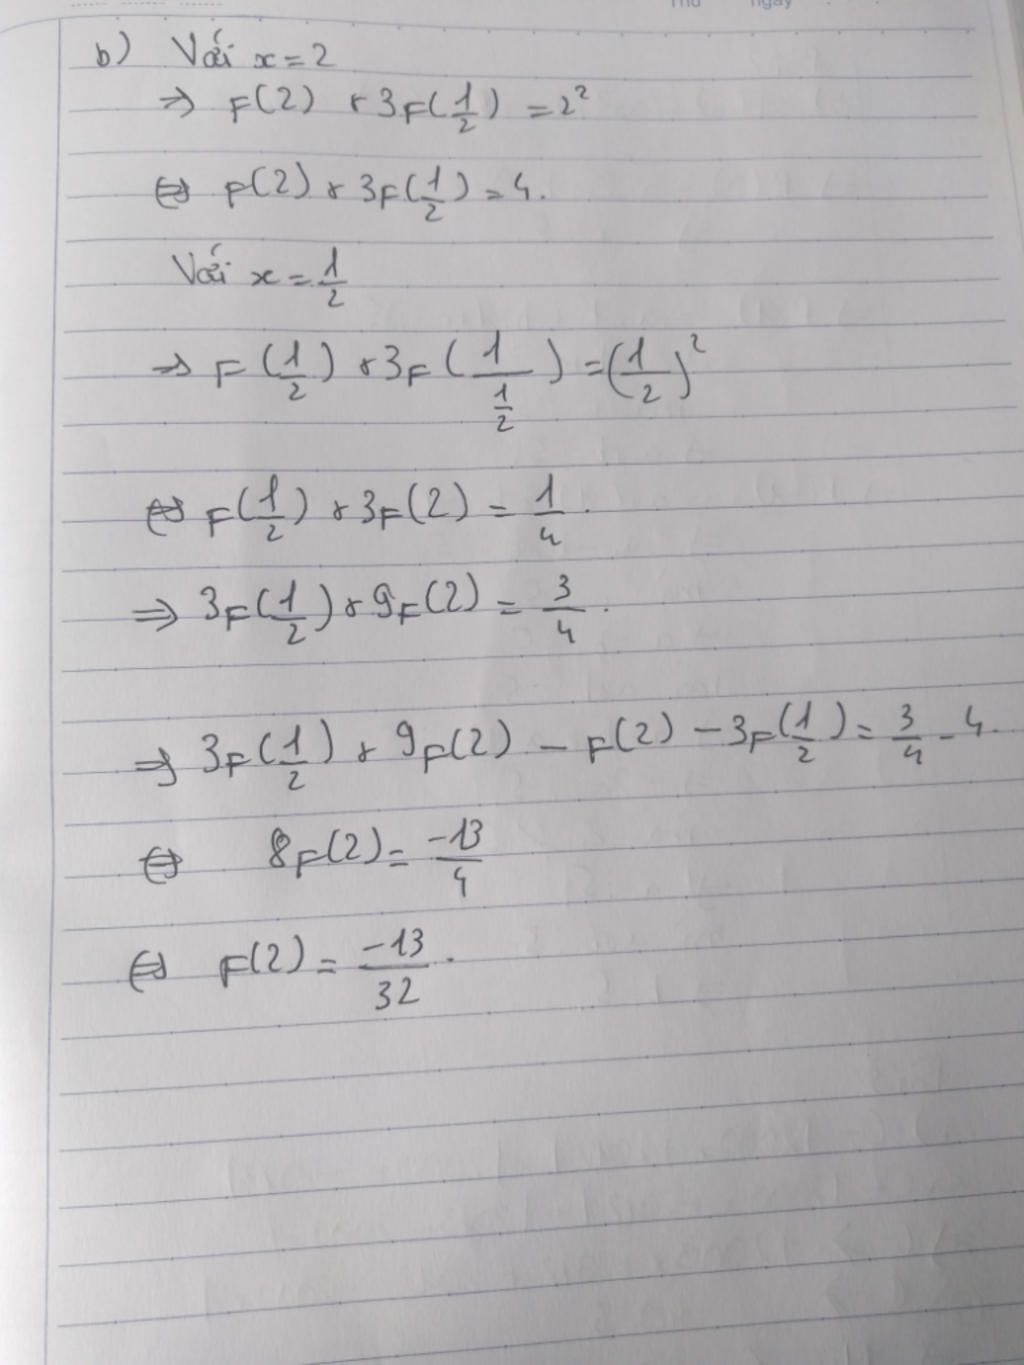 Thứ ngày
b) Với x = 2
⇒ F(2) + 3F(1/2) = 2²
⇔ F(2) + 3F(1/2) = 4.
Với x = 1/2
⇒ F(1/2) + 3F(1/(1/2)) = (1/2)²
⇔ F(1/2) + 3F(2) = 1/4.
⇒ 3F(1/2) + 9F(2) = 3/4.
⇒ 3F(1/2) + 9F(2) - F(2) - 3F(1/2) = 3/4 - 4.
⇔ 8F(2) = -13/4
⇔ F(2) = -13/32.